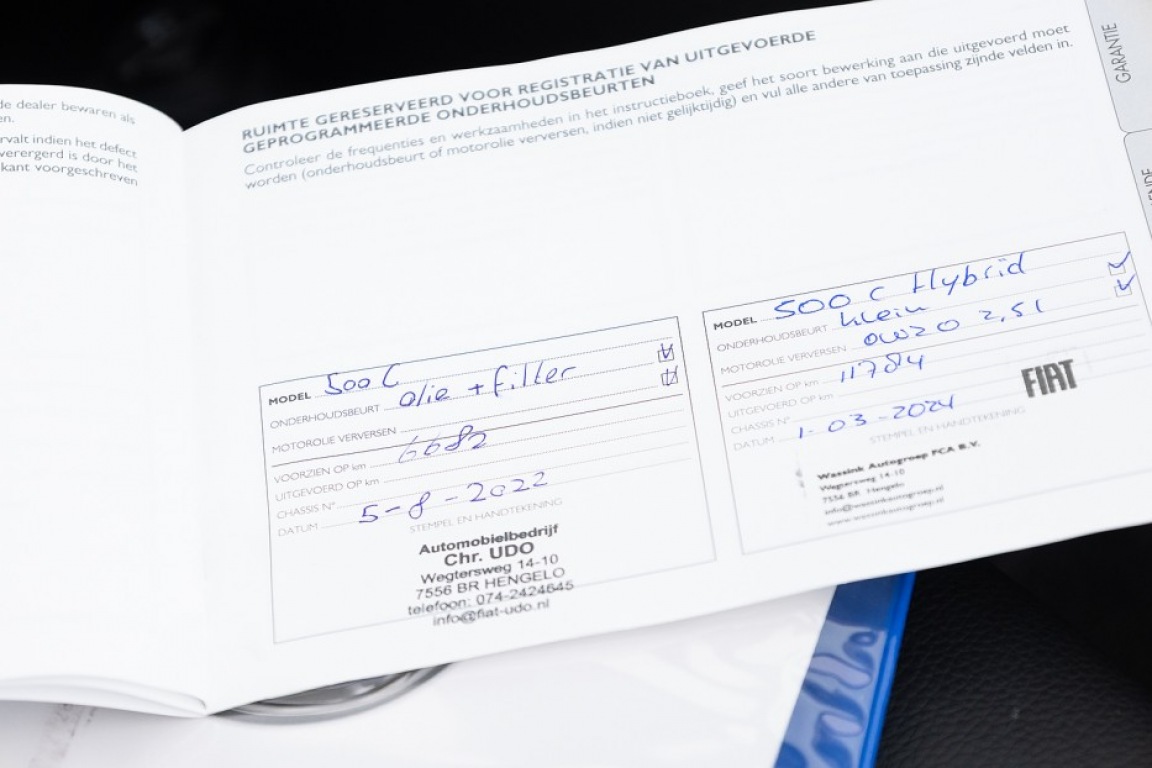 de dealer bewaren als
en.
ervalt indien het defect
verergerd is door het
kant voorgeschreven
RUIMTE GERESERVEERD VOOR REGISTRATIE VAN UITGEVOERDE
GEPROGRAMMEERDE ONDERHOUDSBEURTEN
Controleer de frequenties en werkzaamheden in het instructieboek, geef het soort bewerking aan die uitgevoerd moet
worden (onderhoudsbeurt of motorolie verversen, indien niet gelijktijdig) en vul alle andere van toepassing zijnde velden in.
GARANTIE
MODEL 500 C
ONDERHOUDSBEURT olie + filter
MOTOROLIE VERVERSEN
VOORZIEN OP km 6682
UITGEVOERD OP km
CHASSIS N°
DATUM 5-8-2022
STEMPEL EN HANDTEKENING
Automobielbedrijf
Chr. UDO
Wegtersweg 14-10
7556 BR HENGELO
telefoon: 074-2424645
info@fiat-udo.nl
MODEL 500 C Hybrid
ONDERHOUDSBEURT klein
MOTOROLIE VERVERSEN 0W20 2,5l
VOORZIEN OP km 11784
UITGEVOERD OP km
CHASSIS N°
DATUM 1-03-2024
STEMPEL EN HANDTEKENING
FIAT
Wassink Autogroep FCA B.V.
Wegtersweg 14-10
7556 BR Hengelo
info@wassinkautogroep.nl
www.wassinkautogroep.nl